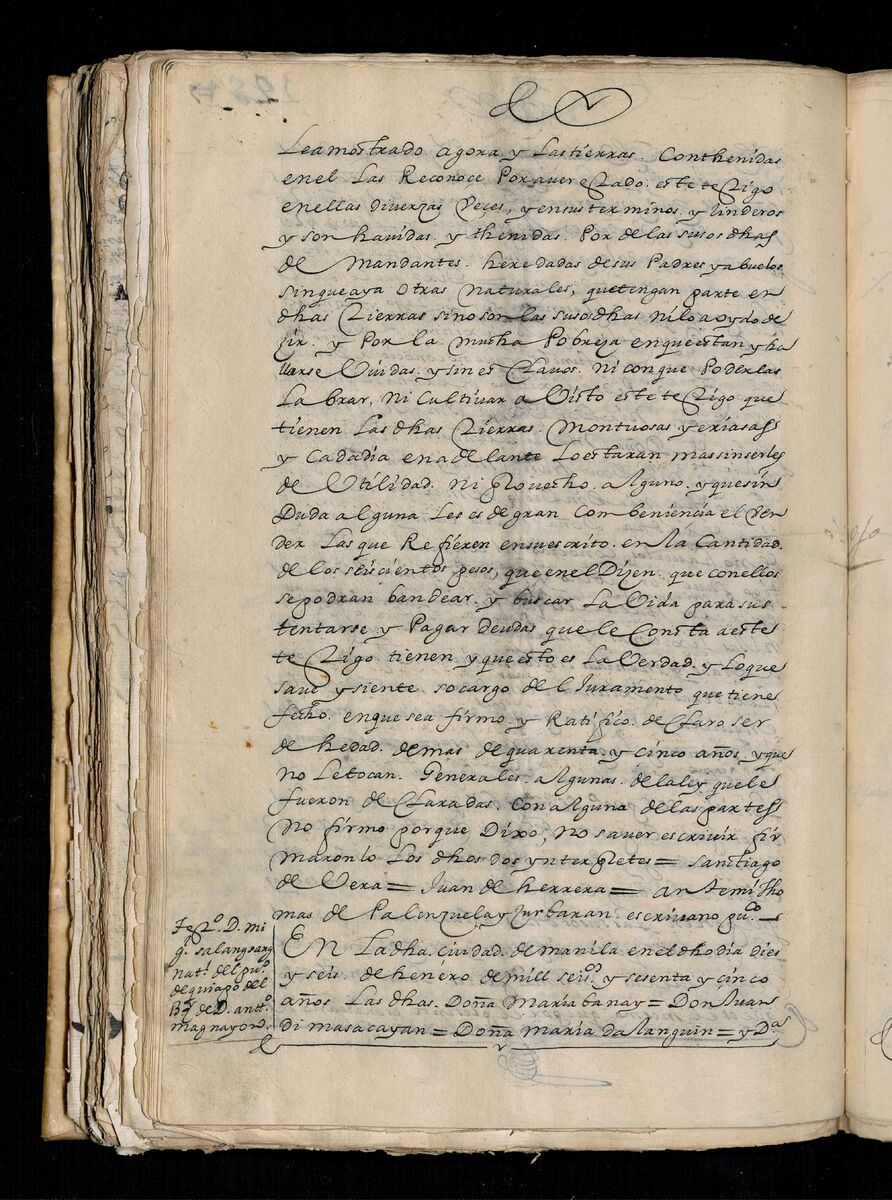 Leamostrado agora y Las tierras. Conthenidas
en el Las Reconoce Por aver estado. este testigo
en ellas diverzas veçes, y en sus terminos y linderos
y son havidas. y thenidas. Por de las susos dhas
de Mandantes. heredadas de sus Padres y abuelos
sin que aya otras naturales, que tengan parte en
dhas tierras sino son las susos dhas ni lo a oydo de
zir. y Por la mucha Pobreza en que estan y ha
llarse Viudas. y sin es Clavos. ni con que Poderlas
Labrar, ni Cultivar a Visto este testigo que
tienen Las dhas tierras. Montuosas y eriasas
y cada dia en adelante Lo estaran mas sin serles
de Utilidad. ni provecho. alguno. y que sin
Duda alguna Les es de gran Combeniencia el Ven
der Las que Refieren en su escrito. en la Cantidad.
de los seiscientos pesos, que en el Dizen. que con ellos
se podran bandear. y buscar La Vida para sus
tentarse y Pagar deudas que le Consta a este
testigo tienen y que esto es La Verdad. y Lo que
save y siente so cargo del Juramento que tiene
fecho. en que se a firmo y Ratifico. de Claro ser
de hedad. de mas de quarenta. y cinco años. y que
no Le tocan. Generales. algunas. de la ley que le
fueron de Claradas. con alguna de las partes
No firmo porque Dixo, no saver escrivir fir
maronlo Los dhos dos ynterpretes = Santiago
de Vera = Juan de herrera = antemi Tho
mas de Palenzuela y Zurbaran. escrivano puco
En La dha. ciudad. de manila en el dho dia dies
y seis de henero de mill seiso. y sesenta y cinco
años Las dhas. Doña Maria banay = Don Juan
di masacayan = Doña maria dalanguin = y Da
Tesgo. D. mi
g. salangsang
natl. del puo.
de quiapo del
Bo. de D. antto.
magnayon.